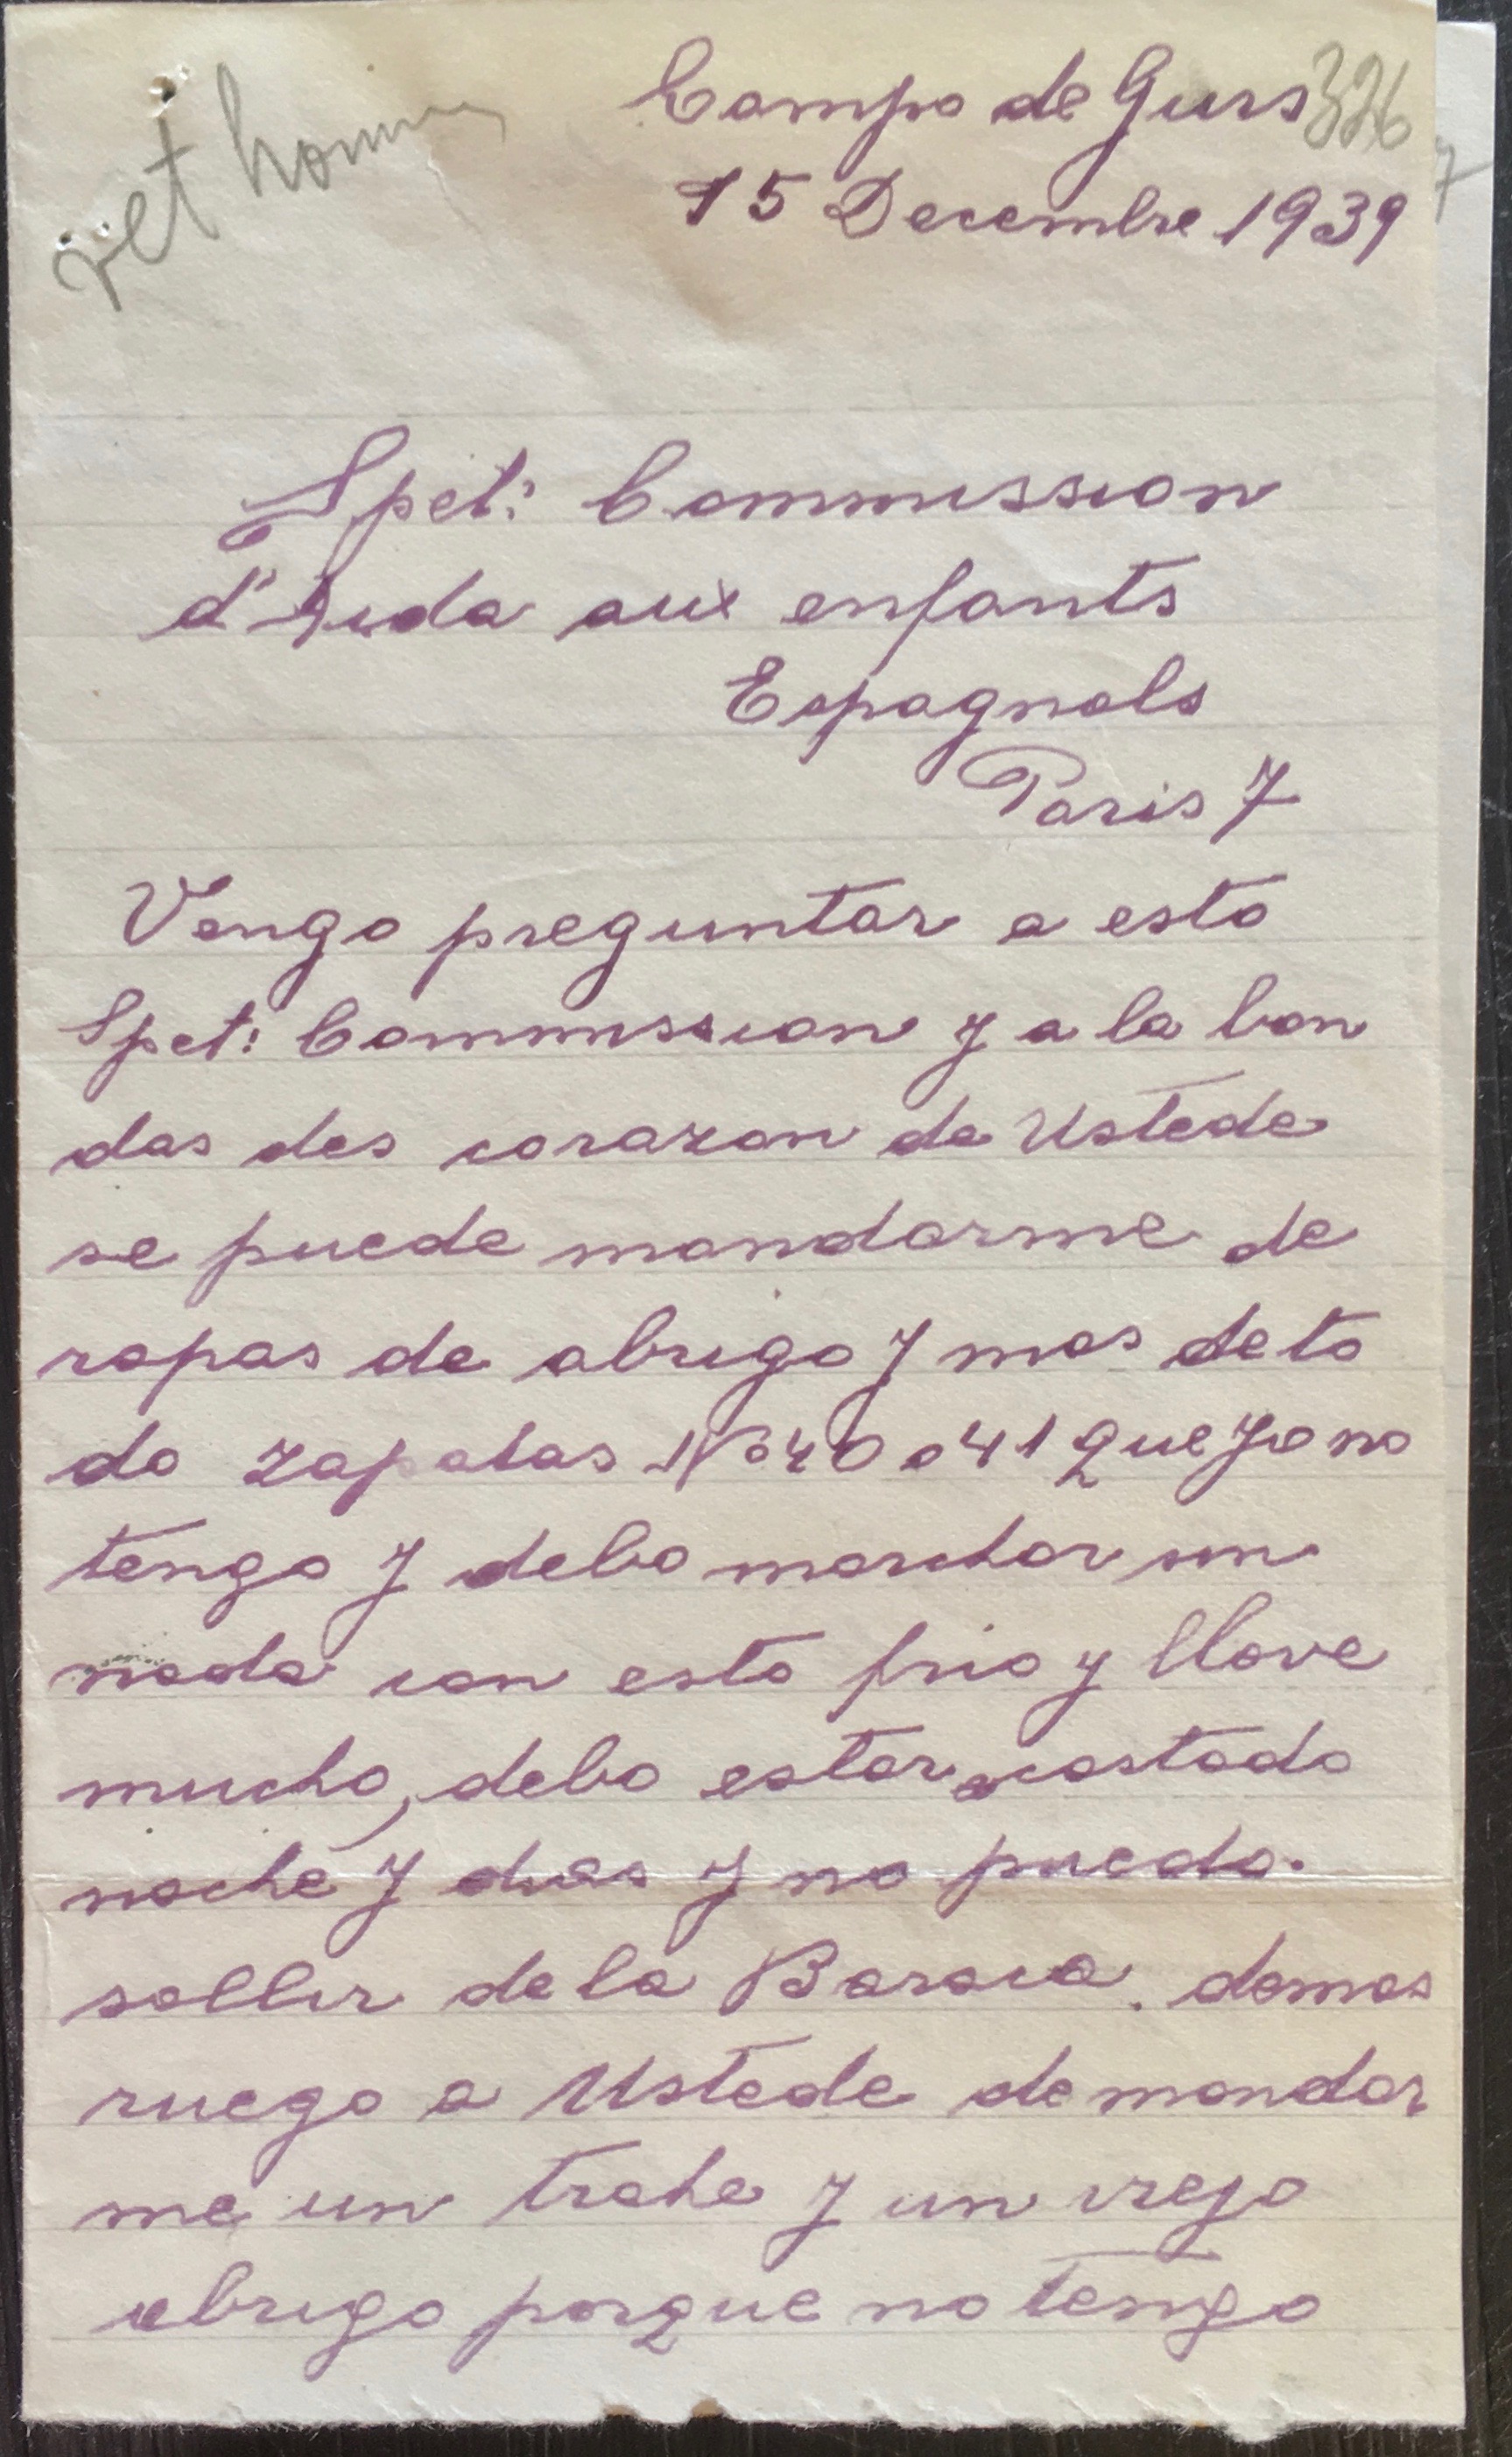 vet hommes
326
Campo de Gurs
15 Decembre 1939
Spet: Commission
d'Aida aux enfants
Espagnols
Paris 7
Vengo preguntar a esta
Spet: Commission y a la bon
das des corazon de Ustede
se puede mandarme de
ropas de abrigo y mas de to
do zapatas No 40 o 41 que yo no
tengo y debo marchar sin
nada con esto frio y llove
mucho, debo estar acostado
noche y dias y no puedo.
sallir de la Baraca. demas
ruego a Ustede de mandar
me un trahe y un viejo
abrigo porque no tengo